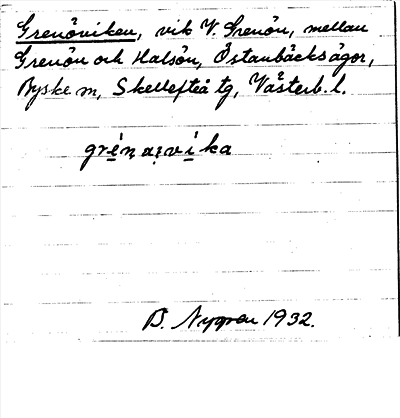 Grenöviken, vik V. Grenön, mellan
Grenön och Halsön, Östanbäcks ägor,
Byske sn, Skellefteå tg, Västerb. l.
grénaṛvíka
B. Nygren 1932.